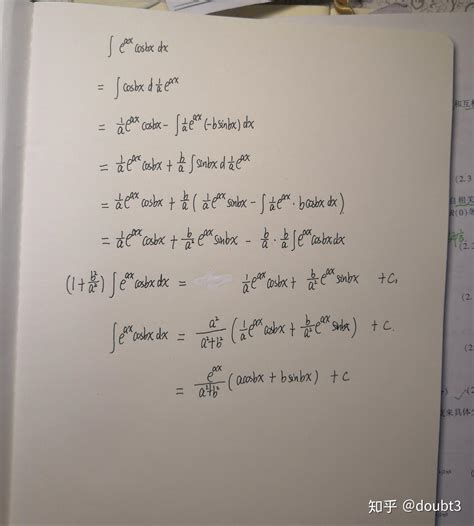 ∫ e^{ax} cosbx dx
= ∫ cosbx d \frac{1}{a} e^{ax}
= \frac{1}{a} e^{ax} cosbx - ∫ \frac{1}{a} e^{ax} (-b sinbx) dx
= \frac{1}{a} e^{ax} cosbx + \frac{b}{a} ∫ sinbx d \frac{1}{a} e^{ax}
= \frac{1}{a} e^{ax} cosbx + \frac{b}{a} ( \frac{1}{a} e^{ax} sinbx - ∫ \frac{1}{a} e^{ax} · b cosbx dx )
= \frac{1}{a} e^{ax} cosbx + \frac{b}{a^2} e^{ax} sinbx - \frac{b}{a} · \frac{b}{a} ∫ e^{ax} cosbx dx
(1 + \frac{b^2}{a^2}) ∫ e^{ax} cosbx dx = \frac{1}{a} e^{ax} cosbx + \frac{b}{a^2} e^{ax} sinbx + C,
∫ e^{ax} cosbx dx = \frac{a^2}{a^2+b^2} ( \frac{1}{a} e^{ax} cosbx + \frac{b}{a^2} e^{ax} sinbx ) + C.
= \frac{e^{ax}}{a^2+b^2} (a cosbx + b sinbx) + C
相互
(2.3
(2
(2
知乎 @doubt3